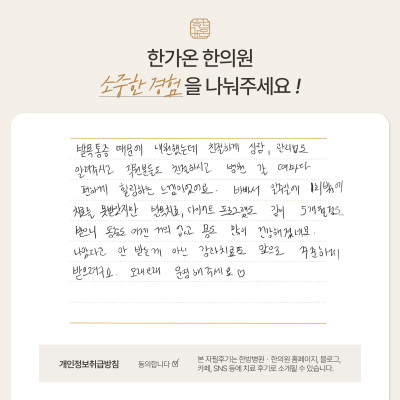 한가온 한의원
소중한 경험을 나눠주세요!
발목통증 때문에 내원했는데 친절하게 상담, 관리법도
알려주시고 직원분들도 친절하시고 병원 갈 때마다
편하게 힐링하는 느낌이었어요. 바빠서 일주일에 1회밖에
치료를 못받았지만 병원치료, 다이어트 프로그램도 같이 5개월정도
받으니 통증도 이젠 거의 없고 몸도 많이 건강해졌네요.
나았다고 안 받는게 아닌 강화치료도 앞으로 꾸준하게
받으려구요. 오래오래 운영해주세요
개인정보취급방침
동의합니다
본 자필후기는 한방병원 · 한의원 홈페이지, 블로그,
카페, SNS 등에 치료 후기로 소개될 수 있습니다.